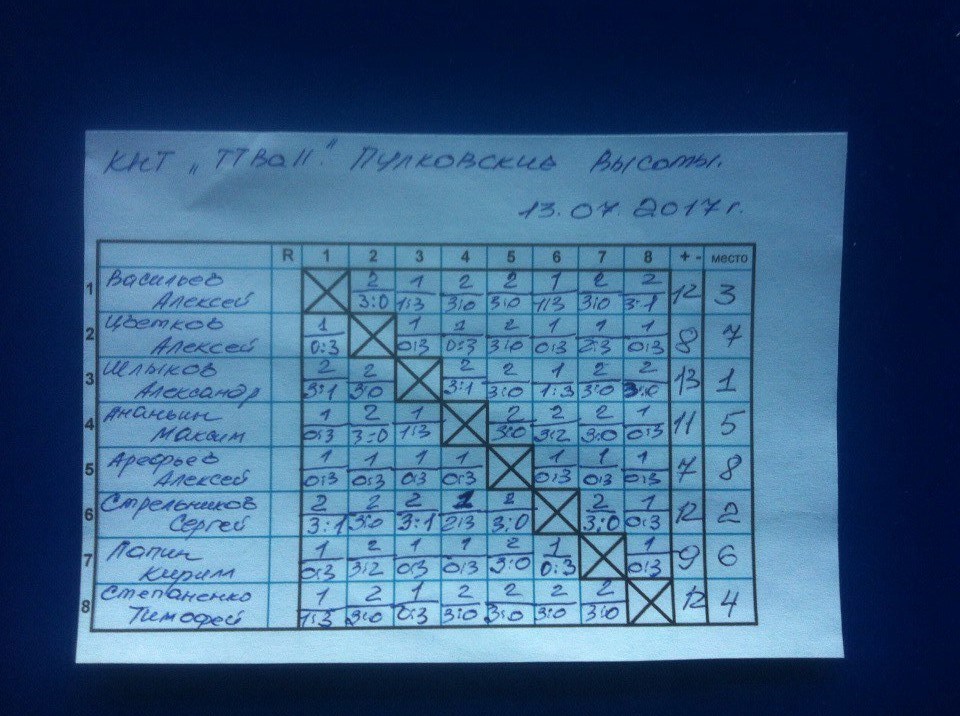 КНТ „ТТВоЛ." Пулковские Высоты.
13.07.2017г.
R 1 2 3 4 5 6 7 8 + - место
1 Васильев 2 1 2 2 1 2 2
Алексей 3:0 1:3 3:0 3:0 1:3 3:0 3:1 12 3
2 Цветков 1 1 1 2 1 1 1
Алексей 0:3 0:3 0:3 3:0 0:3 2:3 0:3 8 7
3 Шлыков 2 2 2 2 1 2 2
Александр 3:1 3:0 3:1 3:0 1:3 3:0 3:0 13 1
4 Ананьин 1 2 1 2 2 2 1
Максим 0:3 3:0 1:3 3:0 3:2 3:0 0:3 11 5
5 Арефьев 1 1 1 1 1 1 1
Алексей 0:3 0:3 0:3 0:3 0:3 0:3 0:3 7 8
6 Стрельников 2 2 2 1 2 2 1
Сергей 3:1 3:0 3:1 2:3 3:0 3:0 0:3 12 2
7 Лапин 1 2 1 1 2 1 1
Кирилл 0:3 3:2 0:3 0:3 3:0 0:3 0:3 9 6
8 Степаненко 1 2 1 2 2 2 2
Тимофей 1:3 3:0 0:3 3:0 3:0 3:0 3:0 12 4